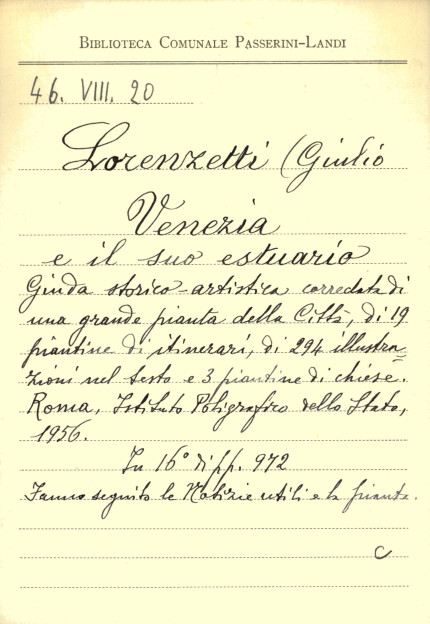 BIBLIOTECA COMUNALE PASSERINI-LANDI
46. VIII. 20
Lorenzetti (Giulio
Venezia
e il suo estuario
Guida storico-artistica corredata di
una grande pianta della Città, di 19
piantine di itinerari, di 294 illustra=
zioni nel testo e 3 piantine di chiese.
Roma, Istituto Poligrafico dello Stato,
1956.
In 16° di pp. 972
Fanno seguito le Notizie utili e la pianta.
C